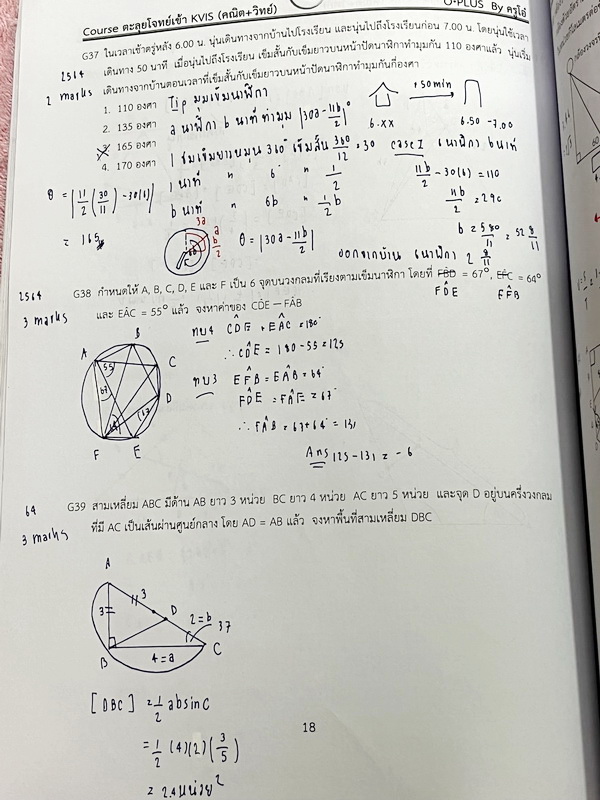 Course ตะลุยโจทย์เข้า KVIS (คณิต+วิทย์)
O-PLUS By ครูโอ๋
G37 ในเวลาเช้าตรู่หลัง 6.00 น. นุ่นเดินทางจากบ้านไปโรงเรียน และนุ่นไปถึงโรงเรียนก่อน 7.00 น. โดยนุ่นใช้เวลา
2564
เดินทาง 50 นาที เมื่อนุ่นไปถึงโรงเรียน เข็มสั้นกับเข็มยาวบนหน้าปัดนาฬิกาทำมุมกัน 110 องศาแล้ว นุ่นเริ่ม
2 marks
เดินทางจากบ้านตอนเวลาที่เข็มสั้นกับเข็มยาวบนหน้าปัดนาฬิกาทำมุมกันกี่องศา
1. 110 องศา
Tip มุมเข็มนาฬิกา
+50 min
2. 135 องศา
a นาฬิกา b นาที ทำมุม |30a - 11b/2|°
6.xx
6.50 -7.00
3. 165 องศา
1 ชม เข็มยาวหมุน 360° เข็มสั้น 360/12 = 30
case I 6 นาฬิกา b นาที
4. 170 องศา
1 นาที " 6° " 1/2
11b/2 - 30(6) = 110
θ = |11/2 (30/11) - 30(6)|
b นาที " 6b " 1/2 b
11b/2 = 290
= 165
3a
a
b/2
θ = |30a - 11b/2|
b = 580/11 = 52 8/11
ออกจากบ้าน 6 นาฬิกา 2 8/11
2564
G38 กำหนดให้ A, B, C, D, E และ F เป็น 6 จุดบนวงกลมที่เรียงตามเข็มนาฬิกา โดยที่ FB̂D = 67°, EF̂C = 64°
FD̂E
EF̂B
3 marks
และ EÂC = 55° แล้ว จงหาค่าของ CD̂E – FÂB
ทบ4 CD̂E + EÂC = 180°
∴ CD̂E = 180 - 55 = 125
ทบ3 EF̂B = EÂB = 64°
FD̂E = FÂE = 67°
∴ FÂB = 67+64° = 131
Ans 125 - 131 = -6
A
B
C
D
E
F
55
67
67
64
G39 สามเหลี่ยม ABC มีด้าน AB ยาว 3 หน่วย BC ยาว 4 หน่วย AC ยาว 5 หน่วย และจุด D อยู่บนครึ่งวงกลม
3 marks
ที่มี AC เป็นเส้นผ่านศูนย์กลาง โดย AD = AB แล้ว จงหาพื้นที่สามเหลี่ยม DBC
64
A
3
3
D
2 = b
37
B
4 = a
C
[DBC] = 1/2 ab sin C
= 1/2 (4)(2)(3/5)
= 2.4 หน่วย²
18